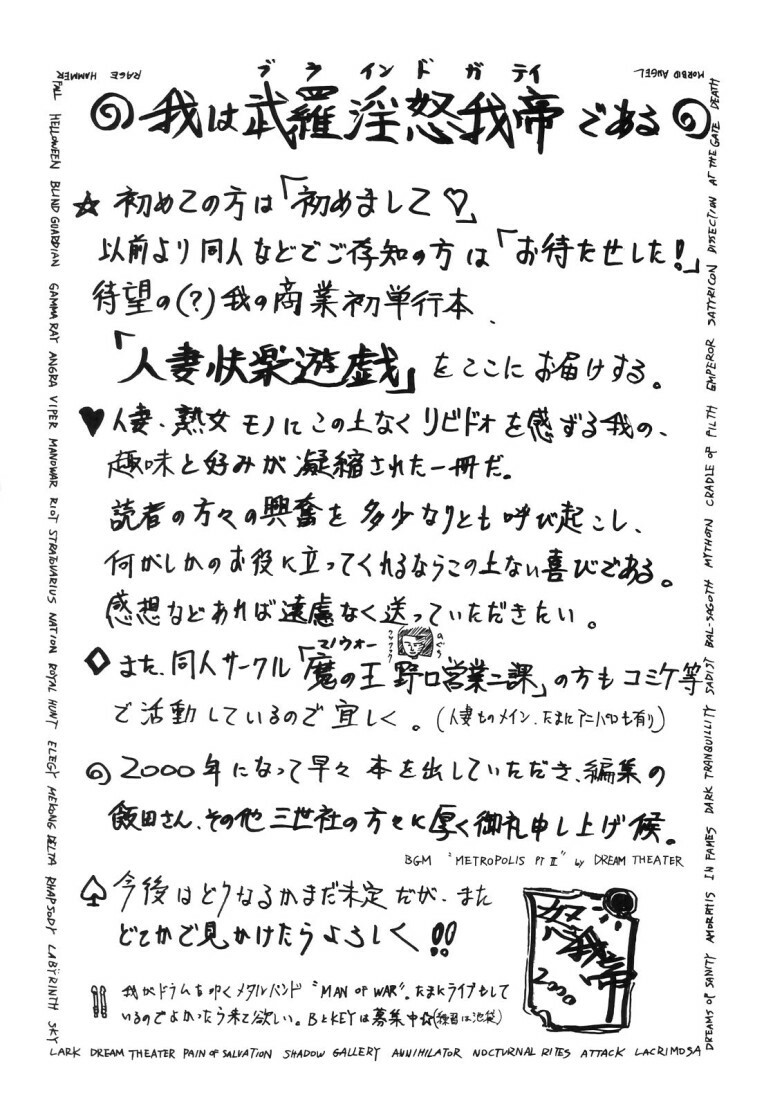 ブラインドガデイ
我は武羅淫怒我帝である
☆初めての方は「初めまして♡」
以前より同人などでご存知の方は「お待たせした!」
待望の(?)我の商業初単行本、
「人妻快楽遊戯」をここにお届けする。
♥人妻、熟女モノにこの上なくリビドオを感ずる我の、
趣味と好みが凝縮された一冊だ。
読者の方々の興奮を多少なりとも呼び起こし、
何がしかのお役に立ってくれるならこの上ない喜びである。
感想などあれば遠慮なく送っていただきたい。
マノウォー
◇また、同人サークル「魔の王野口営業二課」の方もコミケ等
で活動しているので宜しく。(人妻ものメイン、たまにアニパロも有り)
2000年になって早々本を出していただき、編集の
飯田さん、その他三世社の方々に厚く御礼申し上げ候。
BGM "METROPOLIS PT II" by DREAM THEATER
♤今後はどうなるかまだ未定だが、また
どこかで見かけたらよろしく!!
我がドラムを叩くメタルバンド"MAN OF WAR"。たまにライブもして
いるのでよかったら来て欲しい。BとKEYは募集中☆(練習は池袋)
怒我帝
2000
HAMMER FALL HELLOWEEN BLIND GUARDIAN GAMMA RAY ANGRA VIPER MANOWAR RIOT STRATOVARIUS NATION ROYAL HUNT ELEGY MEKONG DELTA RHAPSODY LABŸRINTH SKY
LARK DREAM THEATER PAIN OF SALVATION SHADOW GALLERY ANNIHILATOR NOCTURNAL RITES ATTACK LACRIMOSA
DREAMS OF SANITY AMORPHIS IN FAMES DARK TRANQUILLITY SADIST BAL-SAGOTH MYTHOTN CRADLE OF FILTH EMPEROR SATYRICON DISSECTION AT THE GATE DEATH
MORBID ANGEL
RAGE